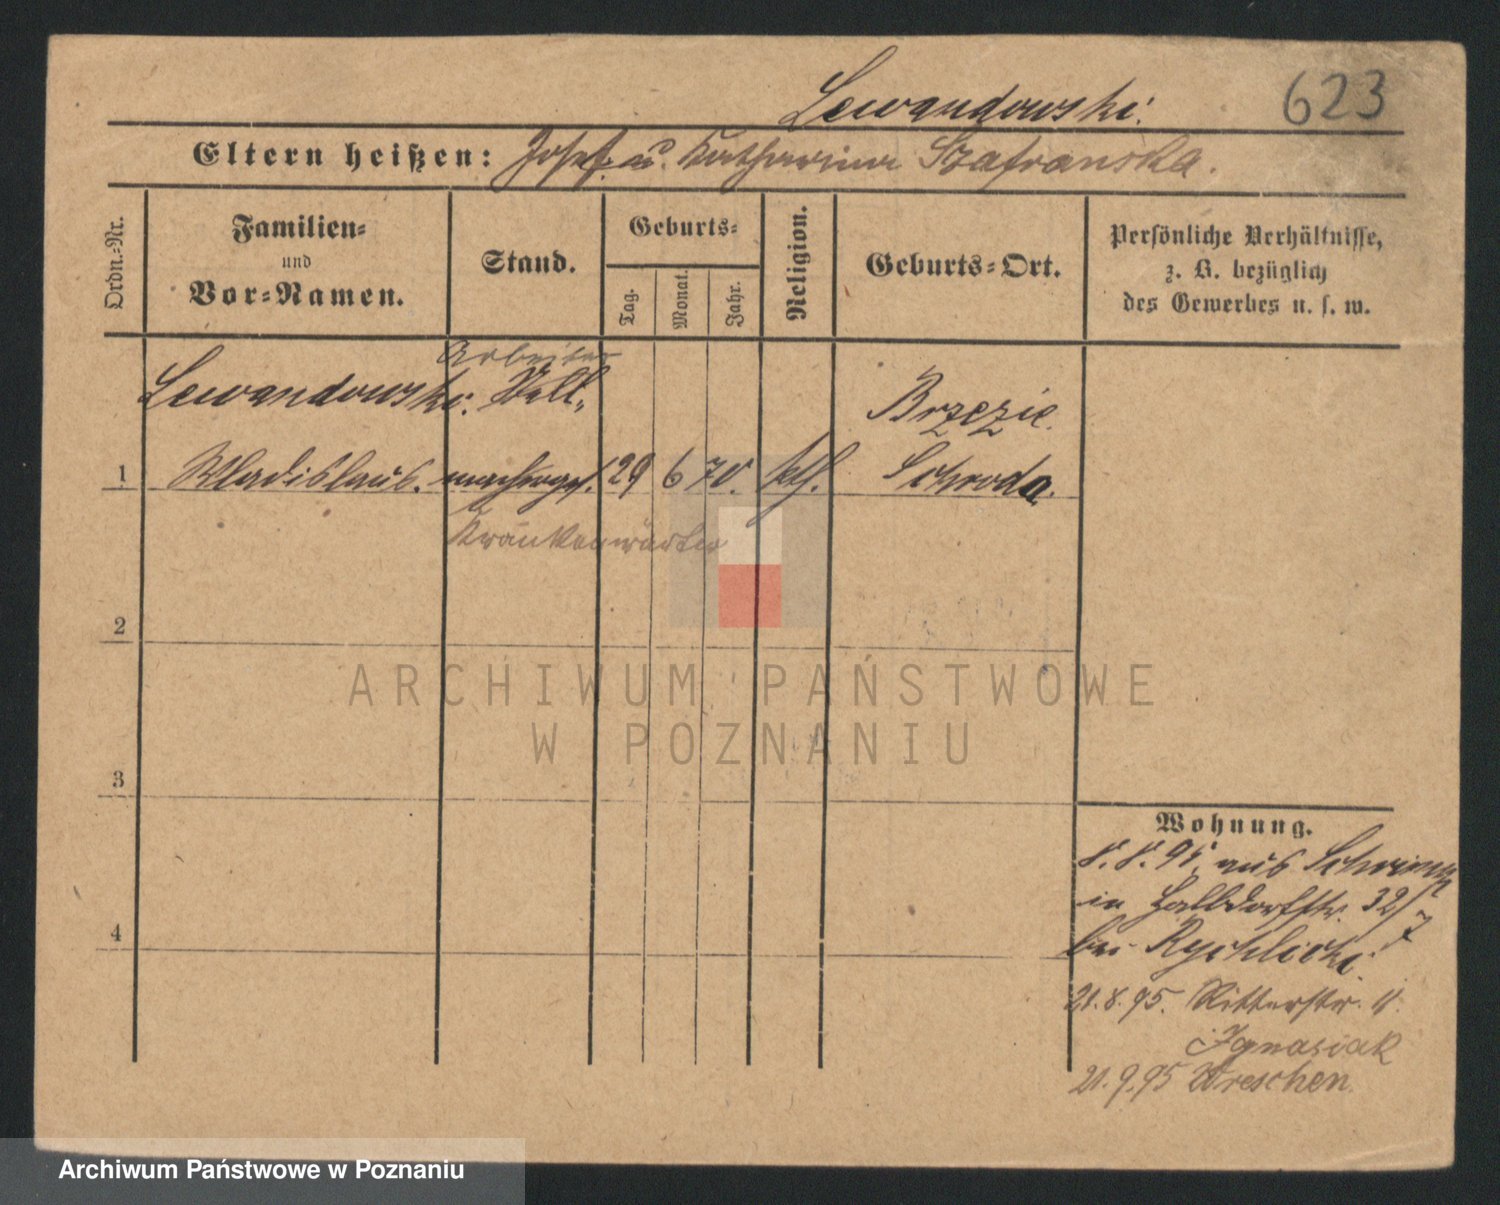 Lewandowski.
623
Eltern heißen: Josef u. Katharina Szafranska.
Ordn.-Nr.
Familien-
und
Vor-Namen.
Stand.
Geburts-
Tag.
Monat.
Jahr.
Religion.
Geburts-Ort.
Persönliche Verhältnisse,
z. B. bezüglich
des Gewerbes u. s. w.
Arbeiter
Lewandowski. Brzezie.
1 Wladislaus. 29 6 70. kth. Schroda.
Krankenwärter
2
3
4
Wohnung.
8.8.95. aus Schrimm
in Halbdorfstr. 32/7
bei Rychlicki.
21.8.95. Ritterstr. 11.
Ignasiak
21.9.95 Wreschen.
ARCHIWUM PAŃSTWOWE
W POZNANIU
Archiwum Państwowe w Poznaniu